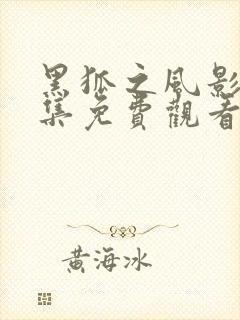 黑狐之風影
集免費觀看
黃海冰